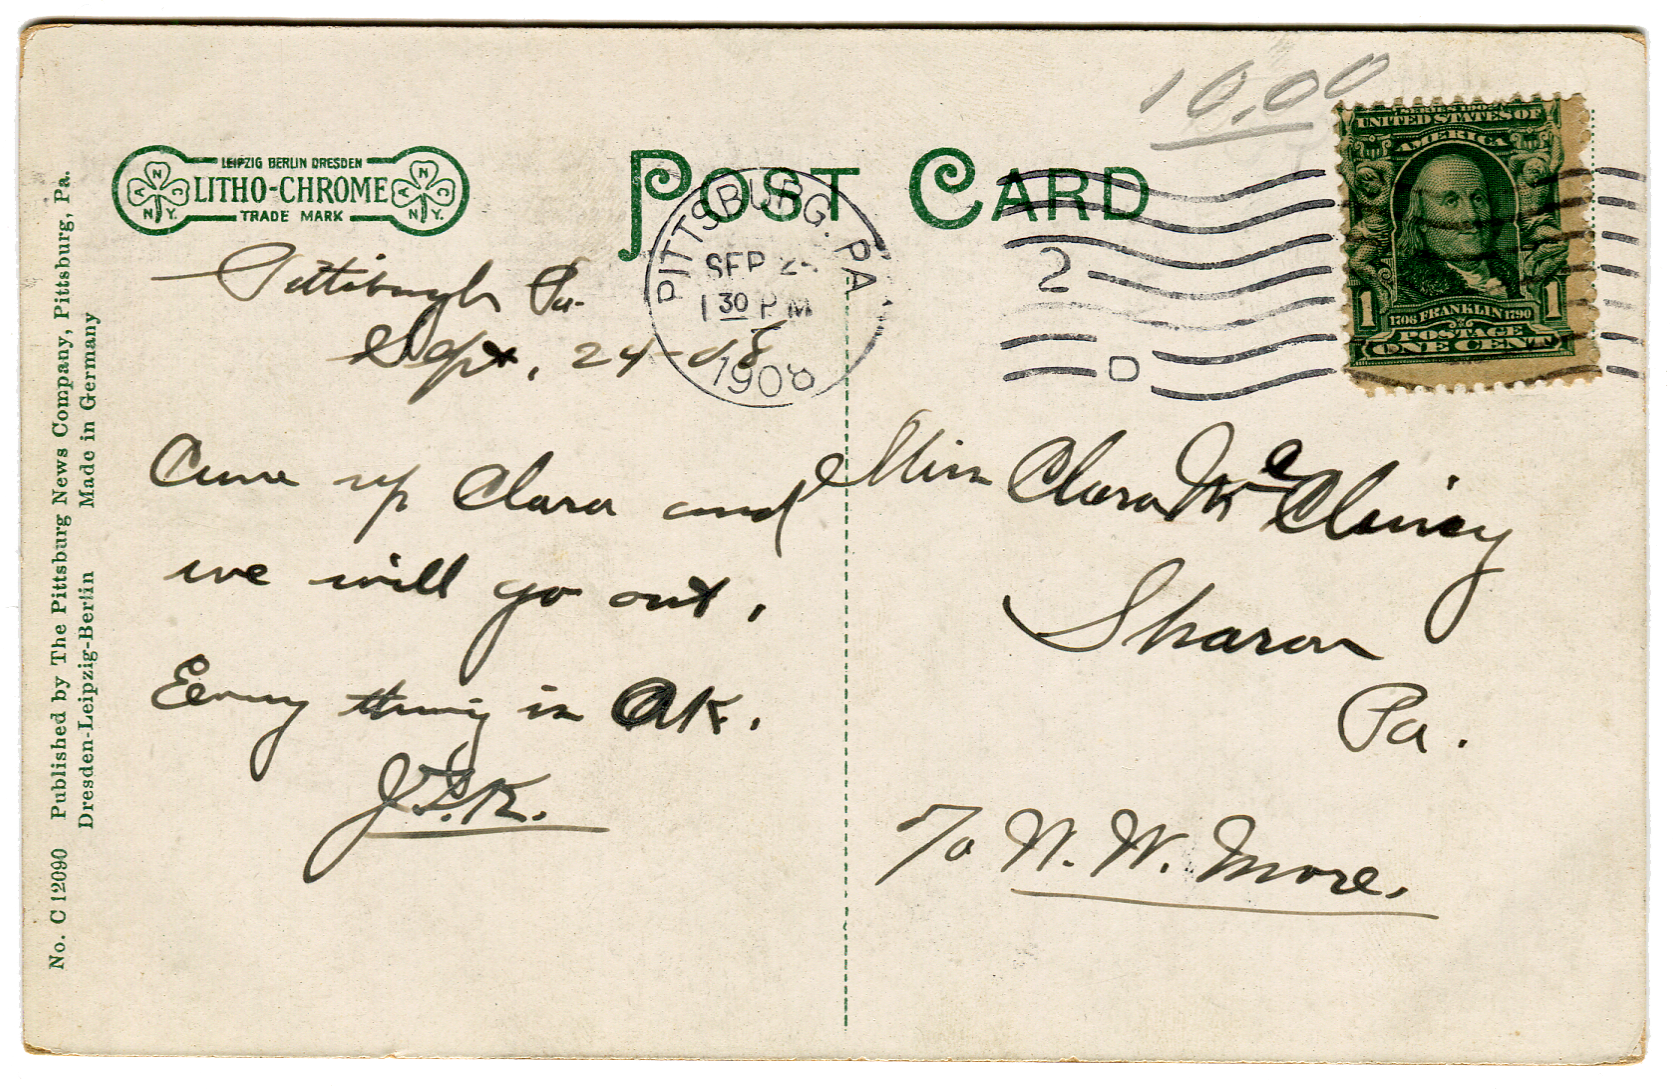 10.00
SERIES 1902
UNITED STATES OF
AMERICA
1706 FRANKLIN 1790
1 1
POSTAGE
ONE CENT
LEIPZIG BERLIN DRESDEN
LITHO-CHROME
TRADE MARK
A N C
N.Y.
A N C
N.Y.
POST CARD
PITTSBURG, PA.
SEP 24
1 30 PM
1908
2
D
Pittsburgh Pa.
Sept, 24-08
Come up Clara and
we will go out,
Every thing is OK.
J.F.K.
Miss Clara Mc
Sharon
Pa.
To N. W. More.
No. C 12090 Published by The Pittsburg News Company, Pittsburg, Pa.
Dresden-Leipzig-Berlin Made in Germany